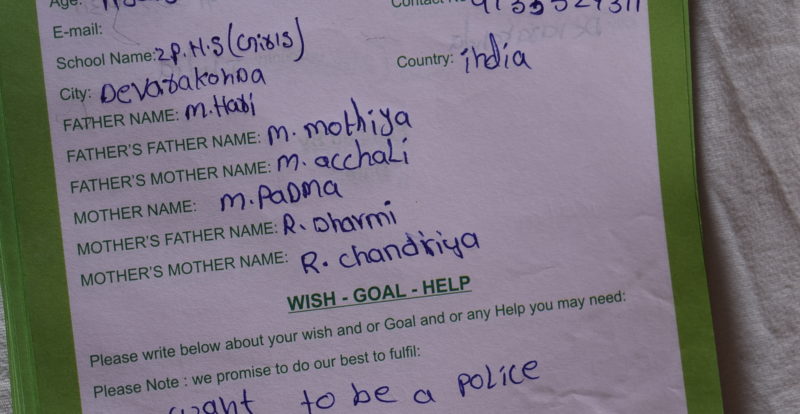 Age:
E-mail:
School Name: ZP.H.S (Girls)
City: Devarakonda Country: india
FATHER NAME: M. Hari
FATHER'S FATHER NAME: M. mothiya
FATHER'S MOTHER NAME: M. acchali
MOTHER NAME: M. PaDma
MOTHER'S FATHER NAME: R. Dharmi
MOTHER'S MOTHER NAME: R. chandiriya
WISH - GOAL - HELP
Please write below about your wish and or Goal and or any Help you may need:
Please Note : we promise to do our best to fulfil:
want to be a police